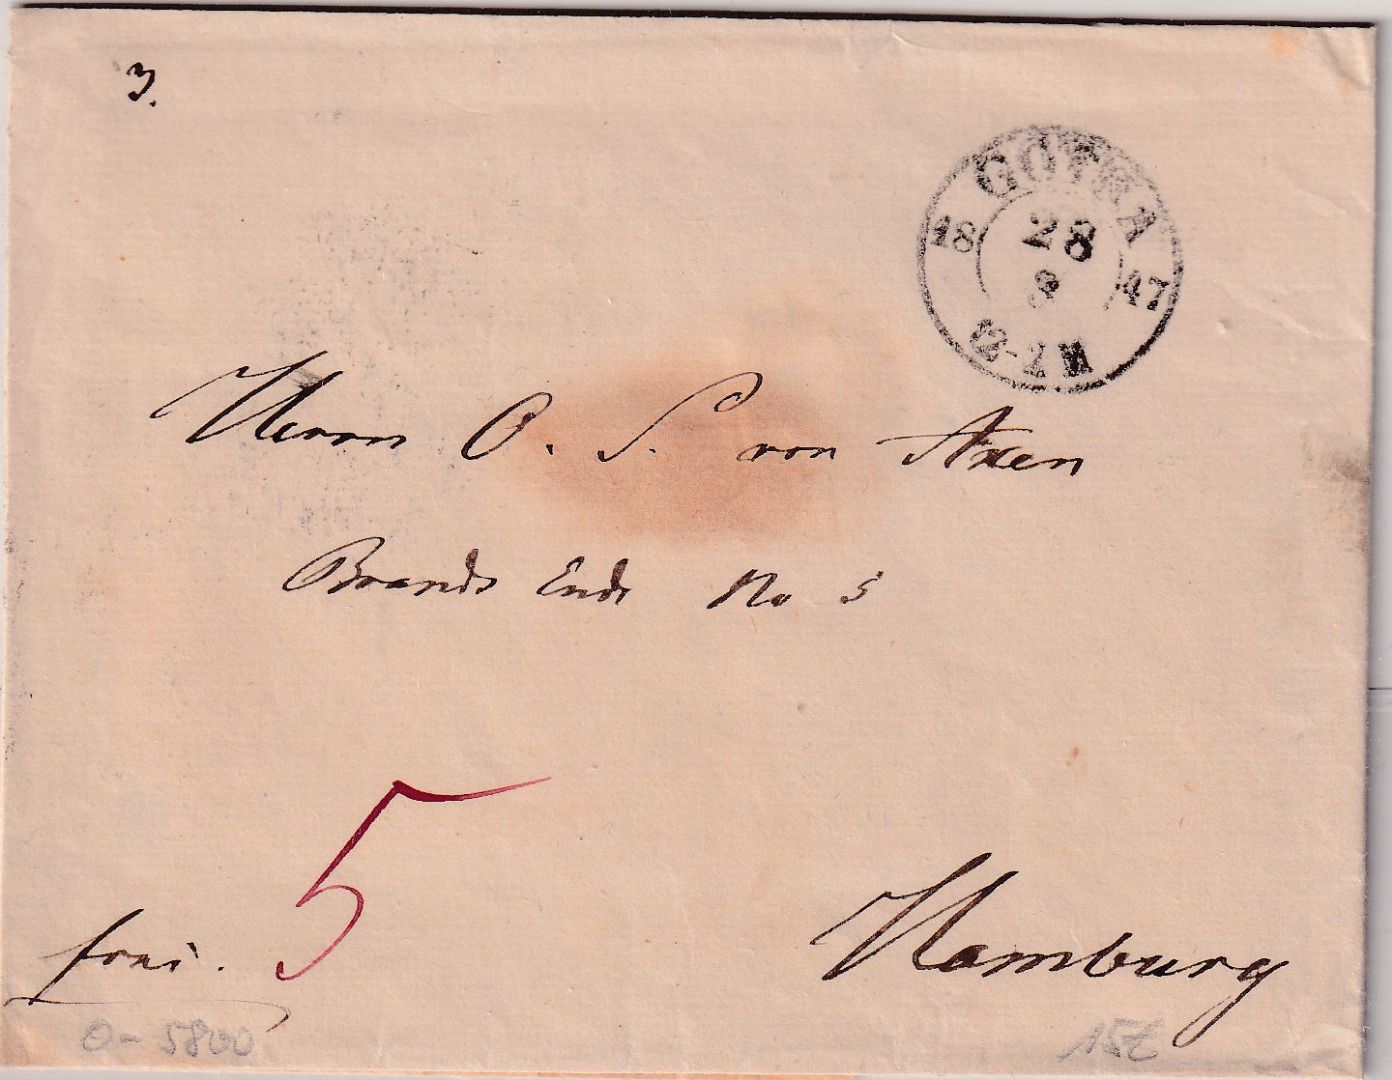 3.
GOTHA
18 28 47
8
12-2 M
Herrn O. S. von Axen
Brands Ende No 5
5
frei.
Hamburg
0-5800.
15£